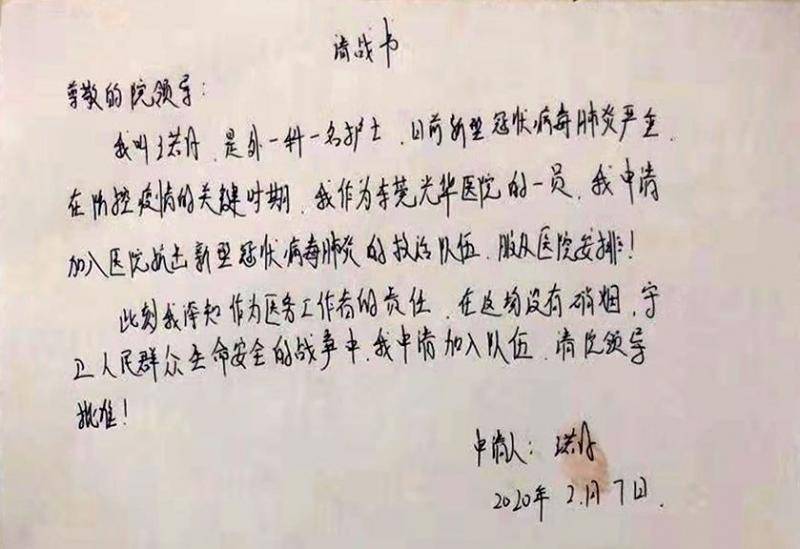 请战书
尊敬的院领导:
我叫王若丹,是外一科一名护士,目前新型冠状病毒肺炎严重,
在防控疫情的关键时期,我作为李莞光华医院的一员,我申请
加入医院抗击新型冠状病毒肺炎的救治队伍,服从医院安排!
此刻我深知作为医务工作者的责任,在这场没有硝烟,守
卫人民群众生命安全的战争中,我申请加入队伍,请院领导
批准!
申请人:
2020年2月7日.